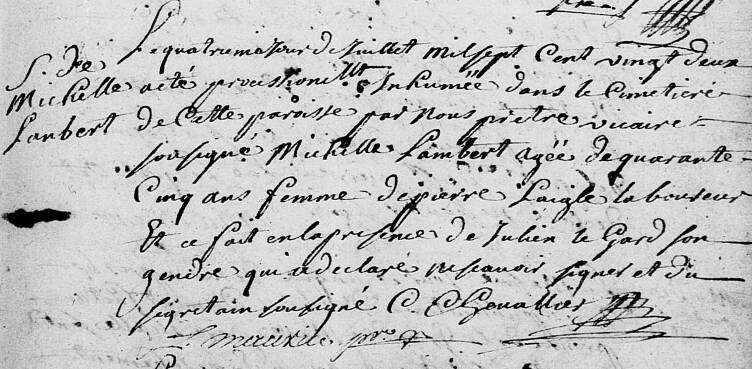 Le quatriemejour de Juillet Milsept Cent vingt deux
S. de
Michelle
Lambert
acté provisionellt Inhumée dans le Cimetiere
de Cette paroisse par Nous pretre vicaire
sousigné Michelle Lambert agéé de quarante
Cinq ans femme depierre Laigle laboureur
Et ce fait enlapresence de Julien le Gard son
gendre qui adeclaré nescavoir signer et du
sigretain sousigné C. Chevallier